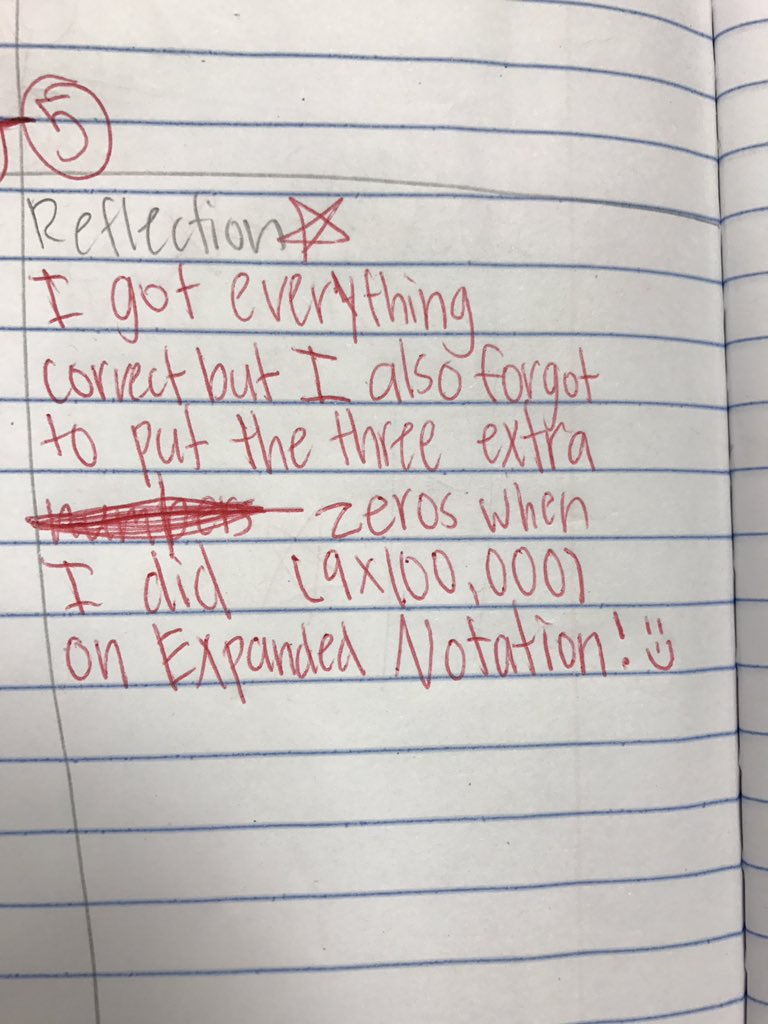 5
Reflection
I got everything
correct but I also forgot
to put the three extra
numbers zeros when
I did (9x100,000)
on Expanded Notation! :)